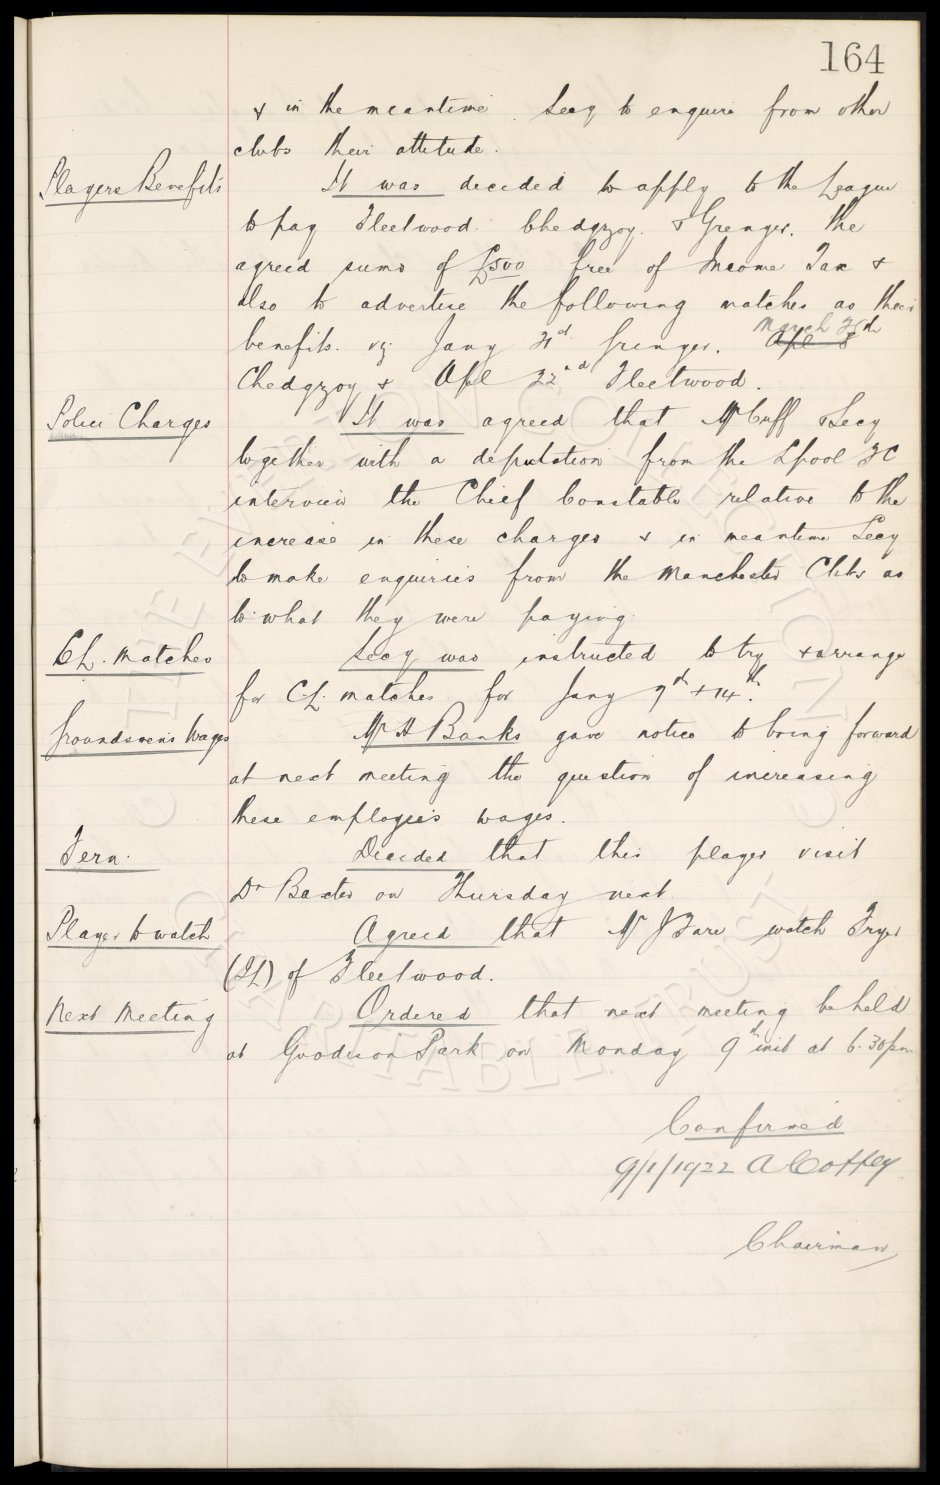 164
& in the meantime Secy to enquire from other
clubs their attitude.
Players Benefits
It was decided to apply to the League
to pay Fleetwood. Chedgzoy. & Grenyer. the
agreed sums of £500 free of Income Tax &
also to advertise the following matches as their
benefits. viz Jany 21st Grenyer. Apl 8 March
Chedgzoy & Apl 22nd Fleetwood.
Police Charges
It was agreed that Mr Cuff & Secy
together with a deputation from the Lpool FC
interview the Chief Constable relative to the
increase in these charges & in meantime Secy
to make enquiries from the Manchester Clubs as
to what they were paying.
CL. Matches
Secy was instructed to try & arrange
for CL. matches for Jany 9th & 14th.
Groundsmen's Wages
Mr H Banks gave notice to bring forward
at next meeting the question of increasing
these employees wages.
Fern.
Decided that this player visit
Dr Baxter on Thursday next
Player to watch
Agreed that Mr J Fare watch Fryer
(IL) of Fleetwood.
Next Meeting
Ordered that next meeting be held
at Goodison Park on Monday 9th inst at 6.30pm.
Confirmed
9/1/1922 A Coffey
Chairman
THE EVERTON COLLECTION
CHARITABLE TRUST